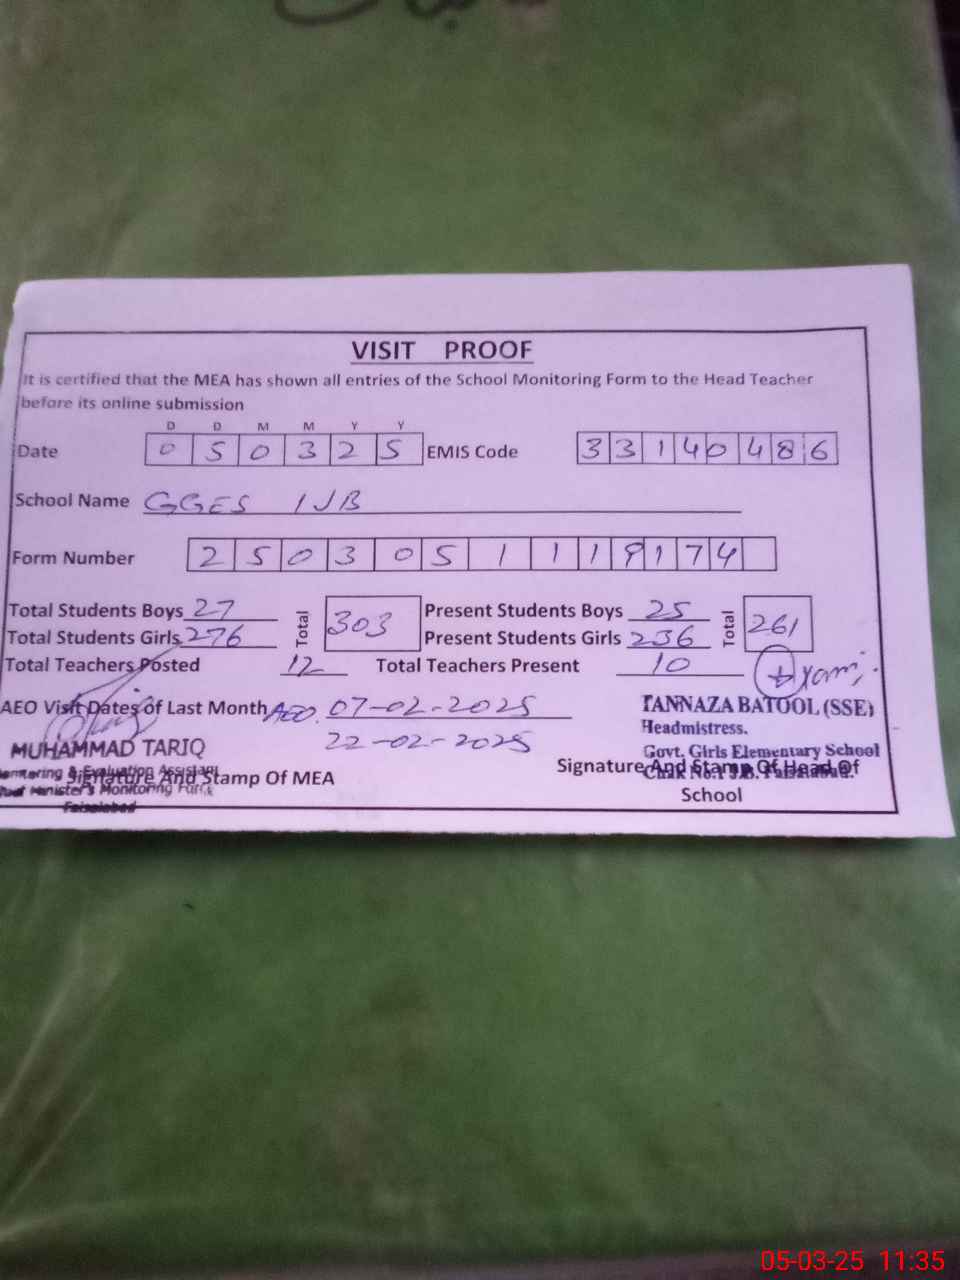 VISIT PROOF
It is certified that the MEA has shown all entries of the School Monitoring Form to the Head Teacher
before its online submission
D D M M Y Y
Date 0 5 0 3 2 5 EMIS Code 3 3 1 4 0 4 8 6
School Name GGES 1JB
Form Number 2 5 0 3 0 5 1 1 1 9 1 7 4
Total Students Boys 27 Total 303 Present Students Boys 25 Total 261
Total Students Girls 276 Present Students Girls 236
Total Teachers Posted 12 Total Teachers Present 10
AEO Visit Dates of Last Month AEO. 07-02-2025
22-02-2025
TANNAZA BATOOL (SSE)
Headmistress.
Govt. Girls Elementary School
Chak No.1 J.B. Faisalabad.
Signature And Stamp Of Head Of
School
MUHAMMAD TARIQ
Monitoring & Evaluation Assistant
Chief Minister's Monitoring Force
Faisalabad
Signature And Stamp Of MEA
05-03-25 11:35